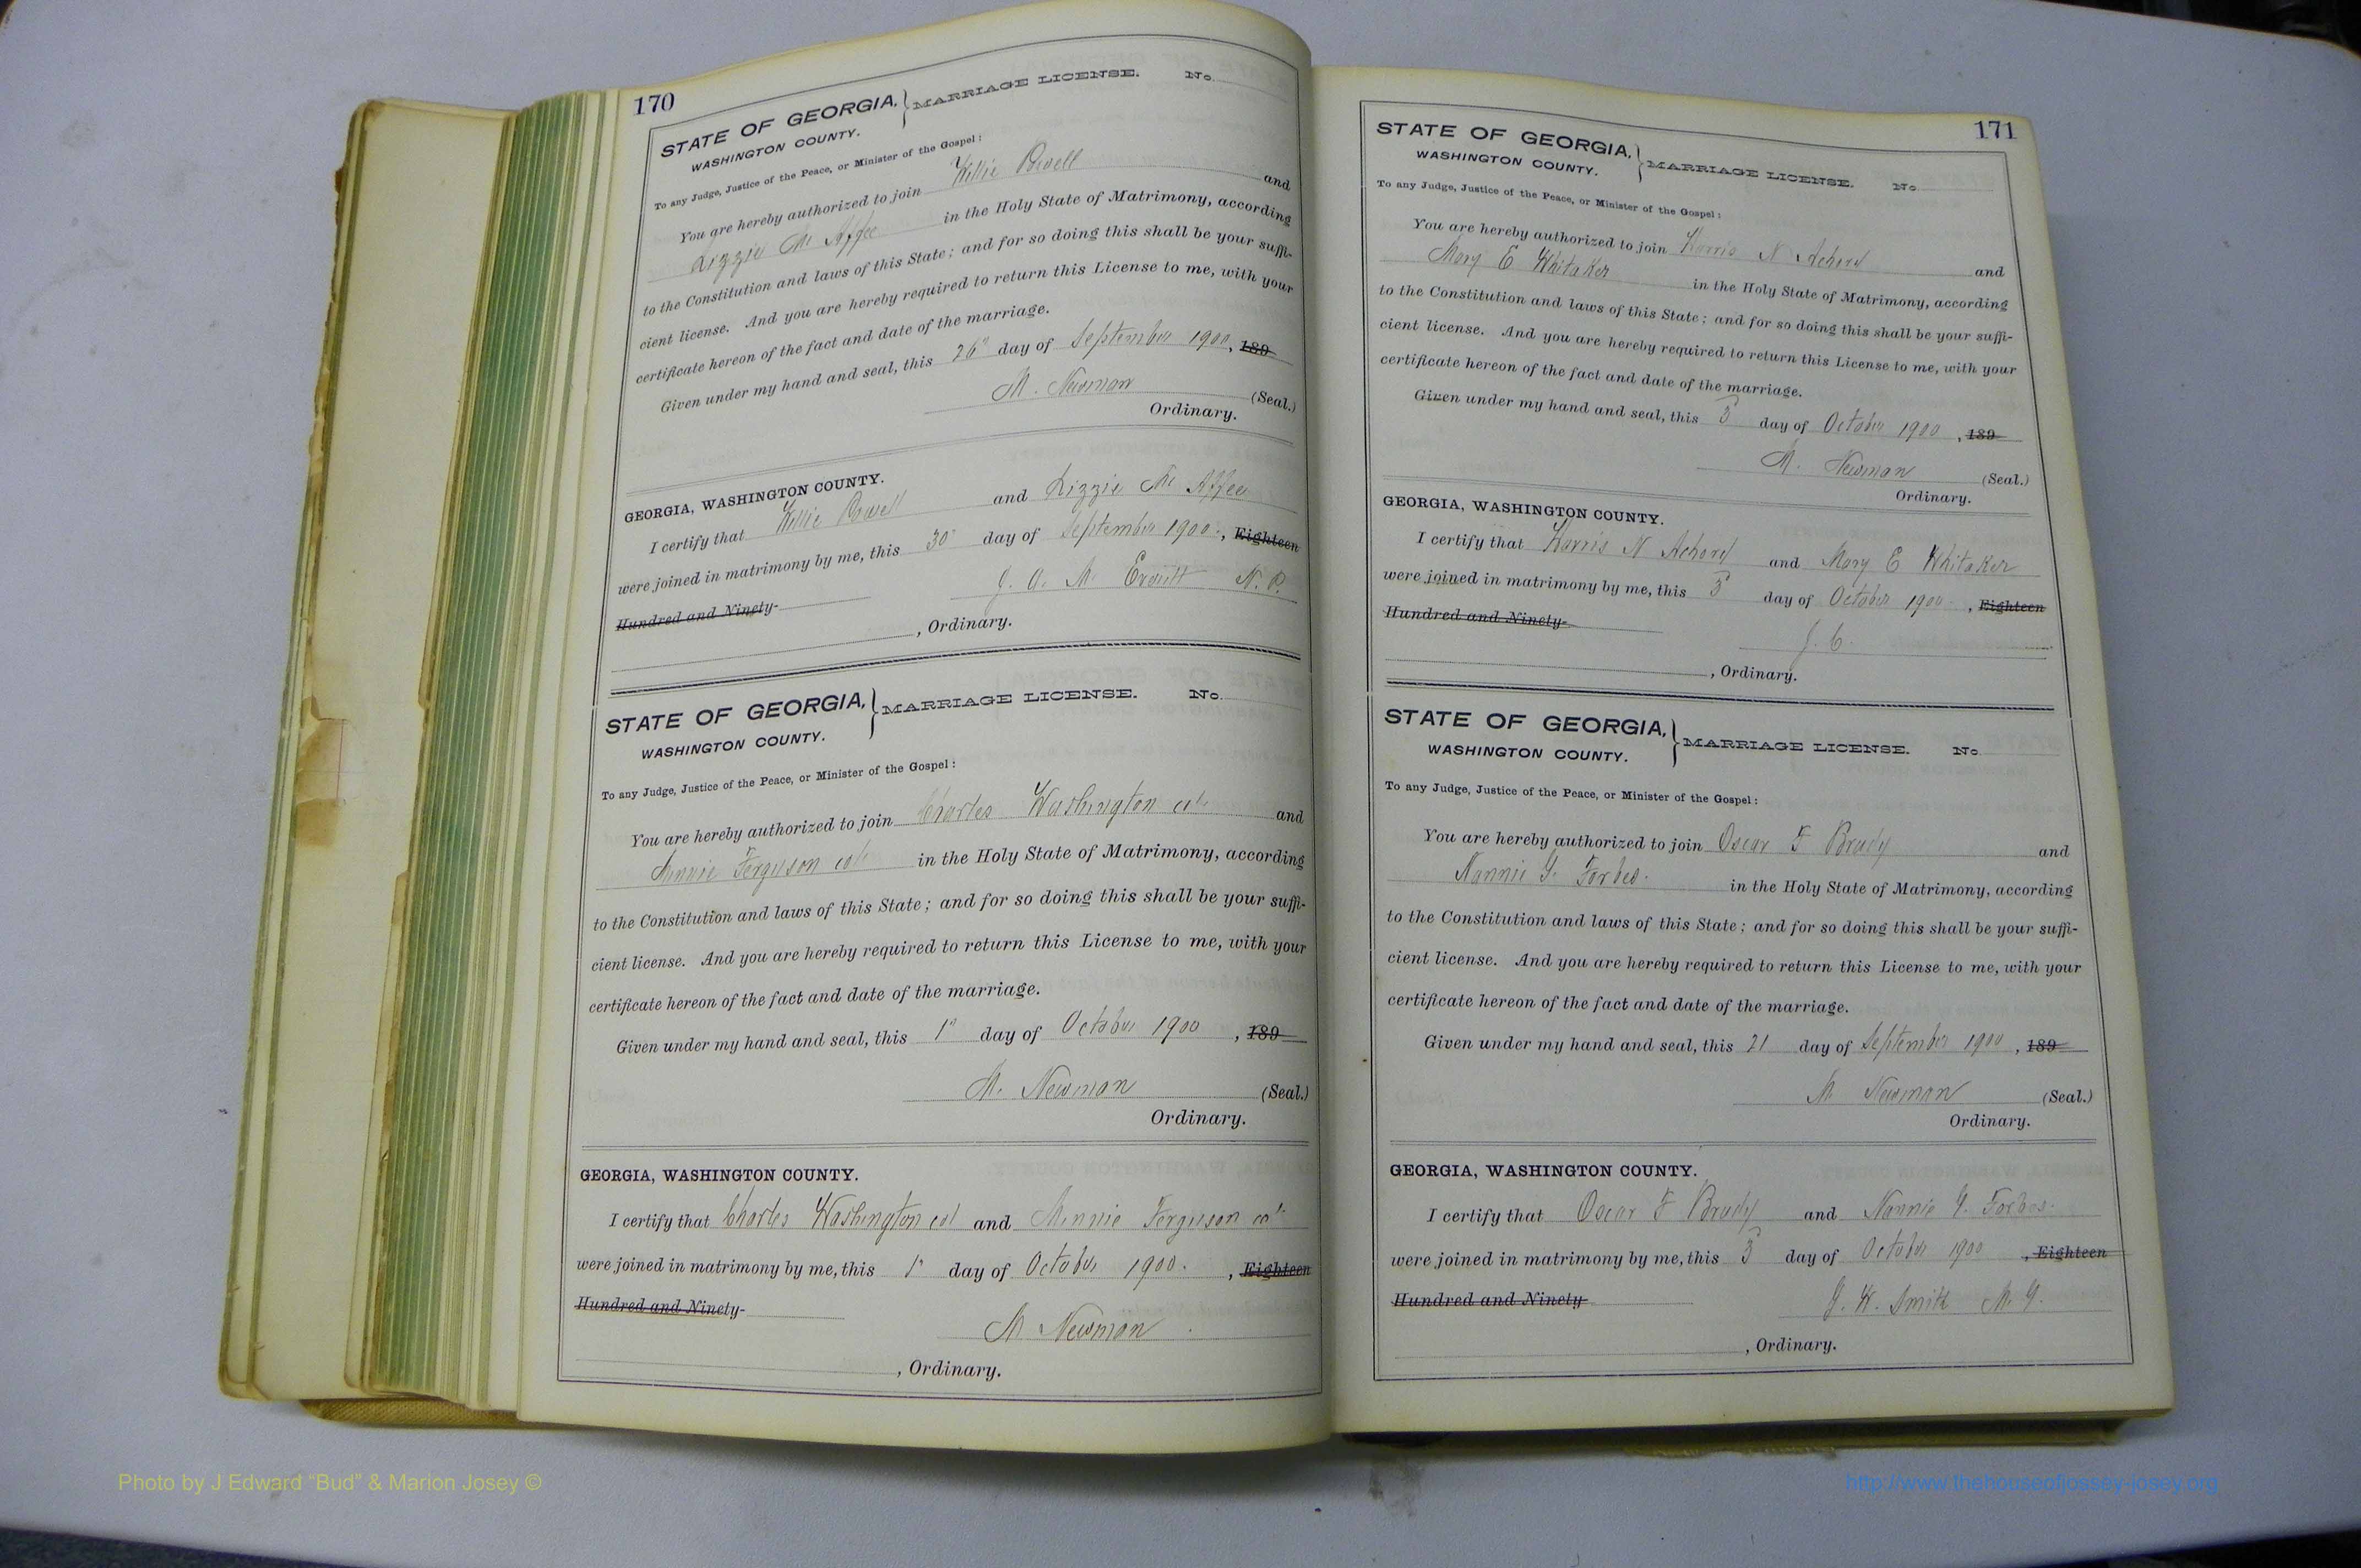 170
STATE OF GEORGIA, } MARRIAGE LICENSE. No.
WASHINGTON COUNTY.
To any Judge, Justice of the Peace, or Minister of the Gospel:
You are hereby authorized to join Willie Powell and
Lizzie Mc Affee in the Holy State of Matrimony, according
to the Constitution and laws of this State; and for so doing this shall be your suffi-
cient license. And you are hereby required to return this License to me, with your
certificate hereon of the fact and date of the marriage.
Given under my hand and seal, this 26" day of September 1900, 189
M. Newman (Seal.)
Ordinary.
GEORGIA, WASHINGTON COUNTY.
I certify that Willie Powell and Lizzie Mc Affee
were joined in matrimony by me, this 30" day of September 1900., Eighteen
Hundred and Ninety-
J. A. M. Everitt N. P.
, Ordinary.
STATE OF GEORGIA, } MARRIAGE LICENSE. No.
WASHINGTON COUNTY.
To any Judge, Justice of the Peace, or Minister of the Gospel:
You are hereby authorized to join Charles Washington col. and
Minnie Ferguson col in the Holy State of Matrimony, according
to the Constitution and laws of this State; and for so doing this shall be your suffi-
cient license. And you are hereby required to return this License to me, with your
certificate hereon of the fact and date of the marriage.
Given under my hand and seal, this 1" day of October 1900, 189
M. Newman (Seal.)
Ordinary.
GEORGIA, WASHINGTON COUNTY.
I certify that Charles Washington col and Minnie Ferguson col.
were joined in matrimony by me, this 1" day of October 1900., Eighteen
Hundred and Ninety-
M Newman
, Ordinary.
171
STATE OF GEORGIA, } MARRIAGE LICENSE. No.
WASHINGTON COUNTY.
To any Judge, Justice of the Peace, or Minister of the Gospel:
You are hereby authorized to join Harris N Achord and
Mary E Whitaker in the Holy State of Matrimony, according
to the Constitution and laws of this State; and for so doing this shall be your suffi-
cient license. And you are hereby required to return this License to me, with your
certificate hereon of the fact and date of the marriage.
Given under my hand and seal, this 3 day of October 1900, 189
M. Newman (Seal.)
Ordinary.
GEORGIA, WASHINGTON COUNTY.
I certify that Harris N Achord and Mary E Whitaker
were joined in matrimony by me, this 3 day of October 1900., Eighteen
Hundred and Ninety-
J. C.
, Ordinary.
STATE OF GEORGIA, } MARRIAGE LICENSE. No.
WASHINGTON COUNTY.
To any Judge, Justice of the Peace, or Minister of the Gospel:
You are hereby authorized to join Oscar F Brady and
Nannie G. Forbes. in the Holy State of Matrimony, according
to the Constitution and laws of this State; and for so doing this shall be your suffi-
cient license. And you are hereby required to return this License to me, with your
certificate hereon of the fact and date of the marriage.
Given under my hand and seal, this 21 day of September 1900, 189
M Newman (Seal.)
Ordinary.
GEORGIA, WASHINGTON COUNTY.
I certify that Oscar F Brady and Nannie G. Forbes.
were joined in matrimony by me, this 3 day of October 1900, Eighteen
Hundred and Ninety-
J. W. Smith M. G.
, Ordinary.
Photo by J Edward “Bud” & Marion Josey ©
http://www.thehouseofjossey-josey.org